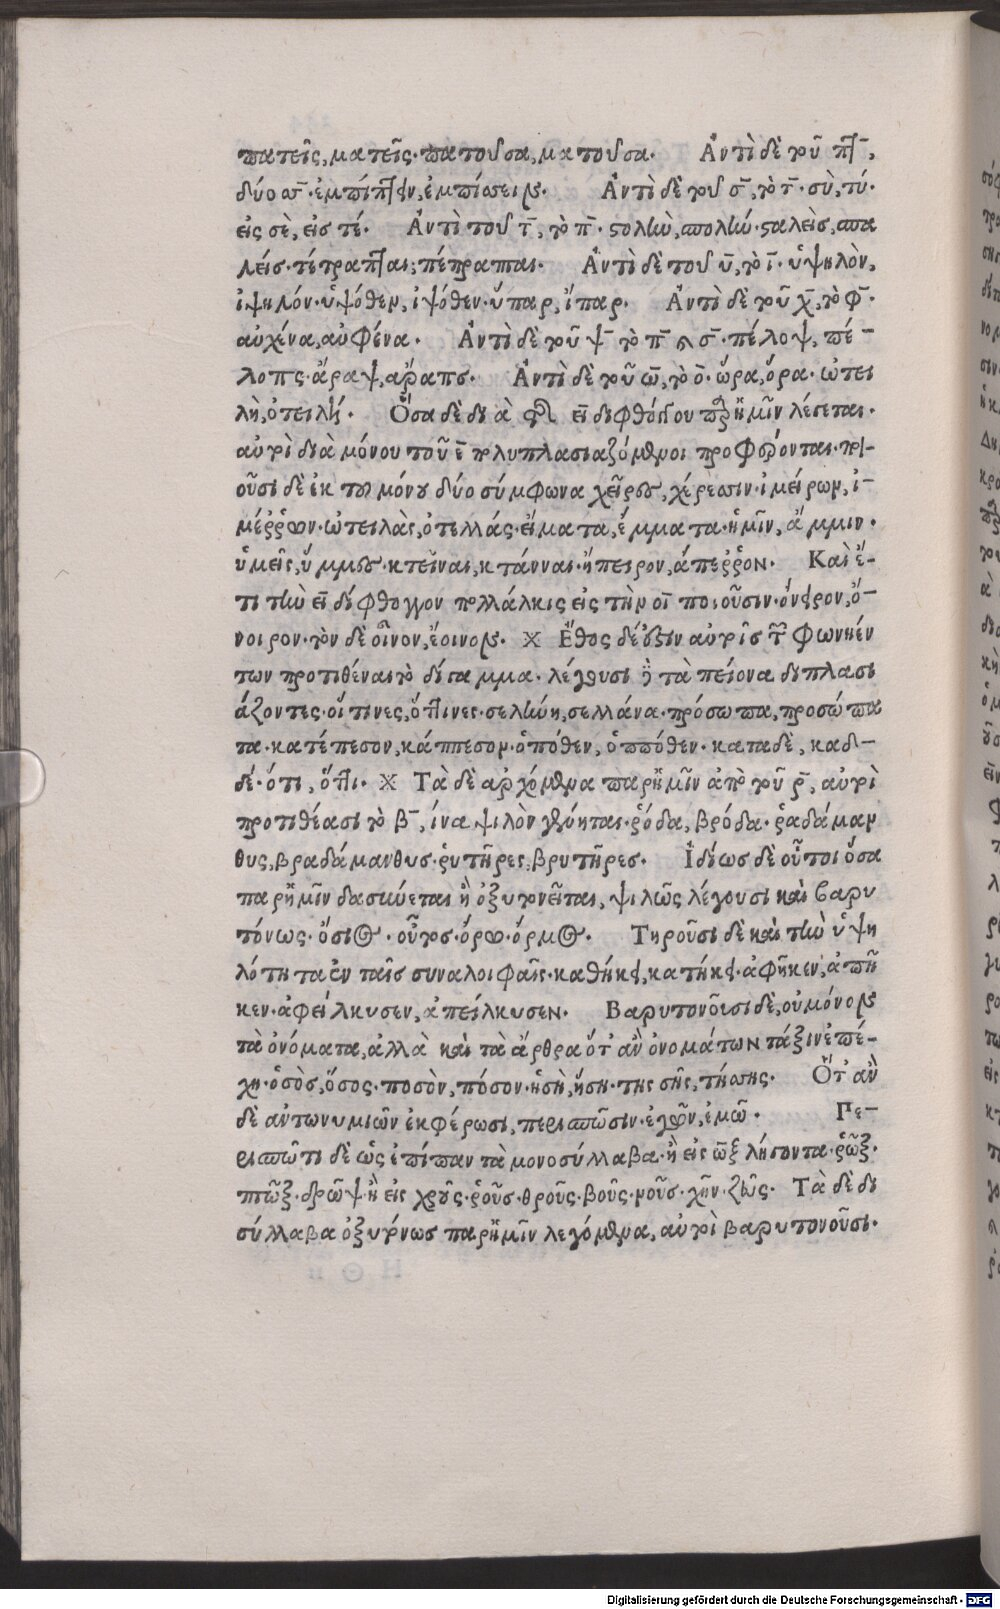 πατεῖς, ματεῖς· πατοῦσα, ματοῦσα· Ἀντὶ δὲ τοῦ πτ̄,
δύο σ̄· ἐμπίπτην, ἐμπίσσειν. Ἀντὶ δὲ τοῦ σ̄, τὸ τ̄· σὺ, τύ·
εἰς σὲ, εἰς τέ· Ἀντὶ τοῦ τ̄, τὸ π̄· στολὴν, σπολήν· σταλεὶς, σπα
λείς· τέτραπται, πέπραπται· Ἀντὶ δὲ τοῦ ῡ, τὸ ῑ· ὑψηλὸν,
ἰψηλόν· ὑψόθεν, ἰψόθεν· ὕπαρ, ἴπαρ· Ἀντὶ δὲ τοῦ χ̄, τὸ φ̄·
αὐχένα, αὐφένα· Ἀντὶ δὲ τοῦ ψ̄ τὸ π̄ καὶ σ̄· πέλοψ, πέ–
λοπς· ἄραψ, ἄραπς· Ἀντὶ δὲ τοῦ ω̄, τὸ ο̄· ὥρα, ὅρα· ὠτει
λὴ, ὀτειλή· Ὅσα δὲ διὰ τῆς ει διφθόγγου παρ᾽ ἡμῖν λέγεται·
αὐτοὶ διὰ μόνου τοῦ ε̄ πολυπλασιαζόμενοι προφέρονται· ποι–
οῦσι δὲ ἐκ τοῦ μόνου δύο σύμφωνα χεῖρας, χέρεσσιν· ἱμείρων, ἰ–
μέῤῥων· ὠτειλὰς, ὀτελλάς· εἵματα, ἔμματα· ἡμῖν, ἄμμιν·
ὑμεῖς, ὔμμες· κτεῖναι, κτάνναι· ἤπειρον, ἄπεῤῥον· Καὶ ἔ–
τι τὴν ει δίφθογγον πολλάκις εἰς τὴν οι ποιοῦσιν· ὄνειρον, ὄ–
νοιρον· τὸν δὲ οἶνον, ἔοινον. Χ Ἔθος δέ ἐστιν αὐτοῖς τῶν φωνηέν
των προτιθέναι τὸ δίγαμμα· λέγουσι δὲ τὰ πλείονα διπλασι
άζοντες· οἵτινες, ὅττινες· σελήνη, σελλάνα· πρόσωπα, προσώπα
τα· κατέπεσον, κάππεσον· ὁπόθεν, ὁππόθεν· καταδὲ, καδ–
δέ· ὅτι, ὅττι· Χ Τὰ δὲ ἀρχόμενα παρ᾽ ἡμῖν ἀπὸ τοῦ ρ̄, αὐτοὶ
προτιθέασι τὸ β̄, ἵνα ψιλὸν γένηται· ῥόδα, βρόδα· ῥαδάμαν
θυς, βραδάμανθυς· ῥυτῆρες, βρυτῆρες· Ἰδίως δὲ οὗτοι ὅσα
παρ᾽ ἡμῖν δασύνεται ἢ ὀξυτονεῖται, ψιλῶς λέγουσι καὶ βαρυ
τόνως· ὅσιος· οὗτος· ὅρος· ὅρμος· Τηροῦσι δὲ καὶ τὴν ὑψη
λότητα ἐν ταῖς συναλοιφαῖς· καθῆκε, κατῆκε· ἀφῆκεν, ἀπῆ
κεν· ἀφείλκυσεν, ἀπείλκυσεν. Βαρυτονοῦσι δὲ, οὐ μόνον
τὰ ὀνόματα, ἀλλὰ καὶ τὰ ἄρθρα ὅτ᾽ ἂν ὀνομάτων τάξιν ἐπέ–
χη· ὁσὸς, ὅσος· ποσὸν, πόσον· ἡσὴ, ἥση· τῆς σῆς, τήσης· Ὅτ᾽ ἂν
δὲ ἀντωνυμιῶν ἐκφέρωσι, περισπῶσιν· ἐγῶν, ἐμῶ· Πε–
ρισπῶντι δὲ ὡς ἐπίπαν τὰ μονοσύλλαβα· ἢ εἰς ωξ λήγοντα· ῥῶξ·
πτῶξ· δρῶψ· ἢ εἰς χοῦς· ῥοῦς· θροῦς· βοῦς· νοῦς· χῆν· ζῆς· Τὰ δὲ δι
σύλλαβα ὀξυτόνως παρ᾽ ἡμῖν λεγόμενα, αὐτοὶ βαρυτονοῦσι·
Digitalisierung gefördert durch die Deutsche Forschungsgemeinschaft - DFG